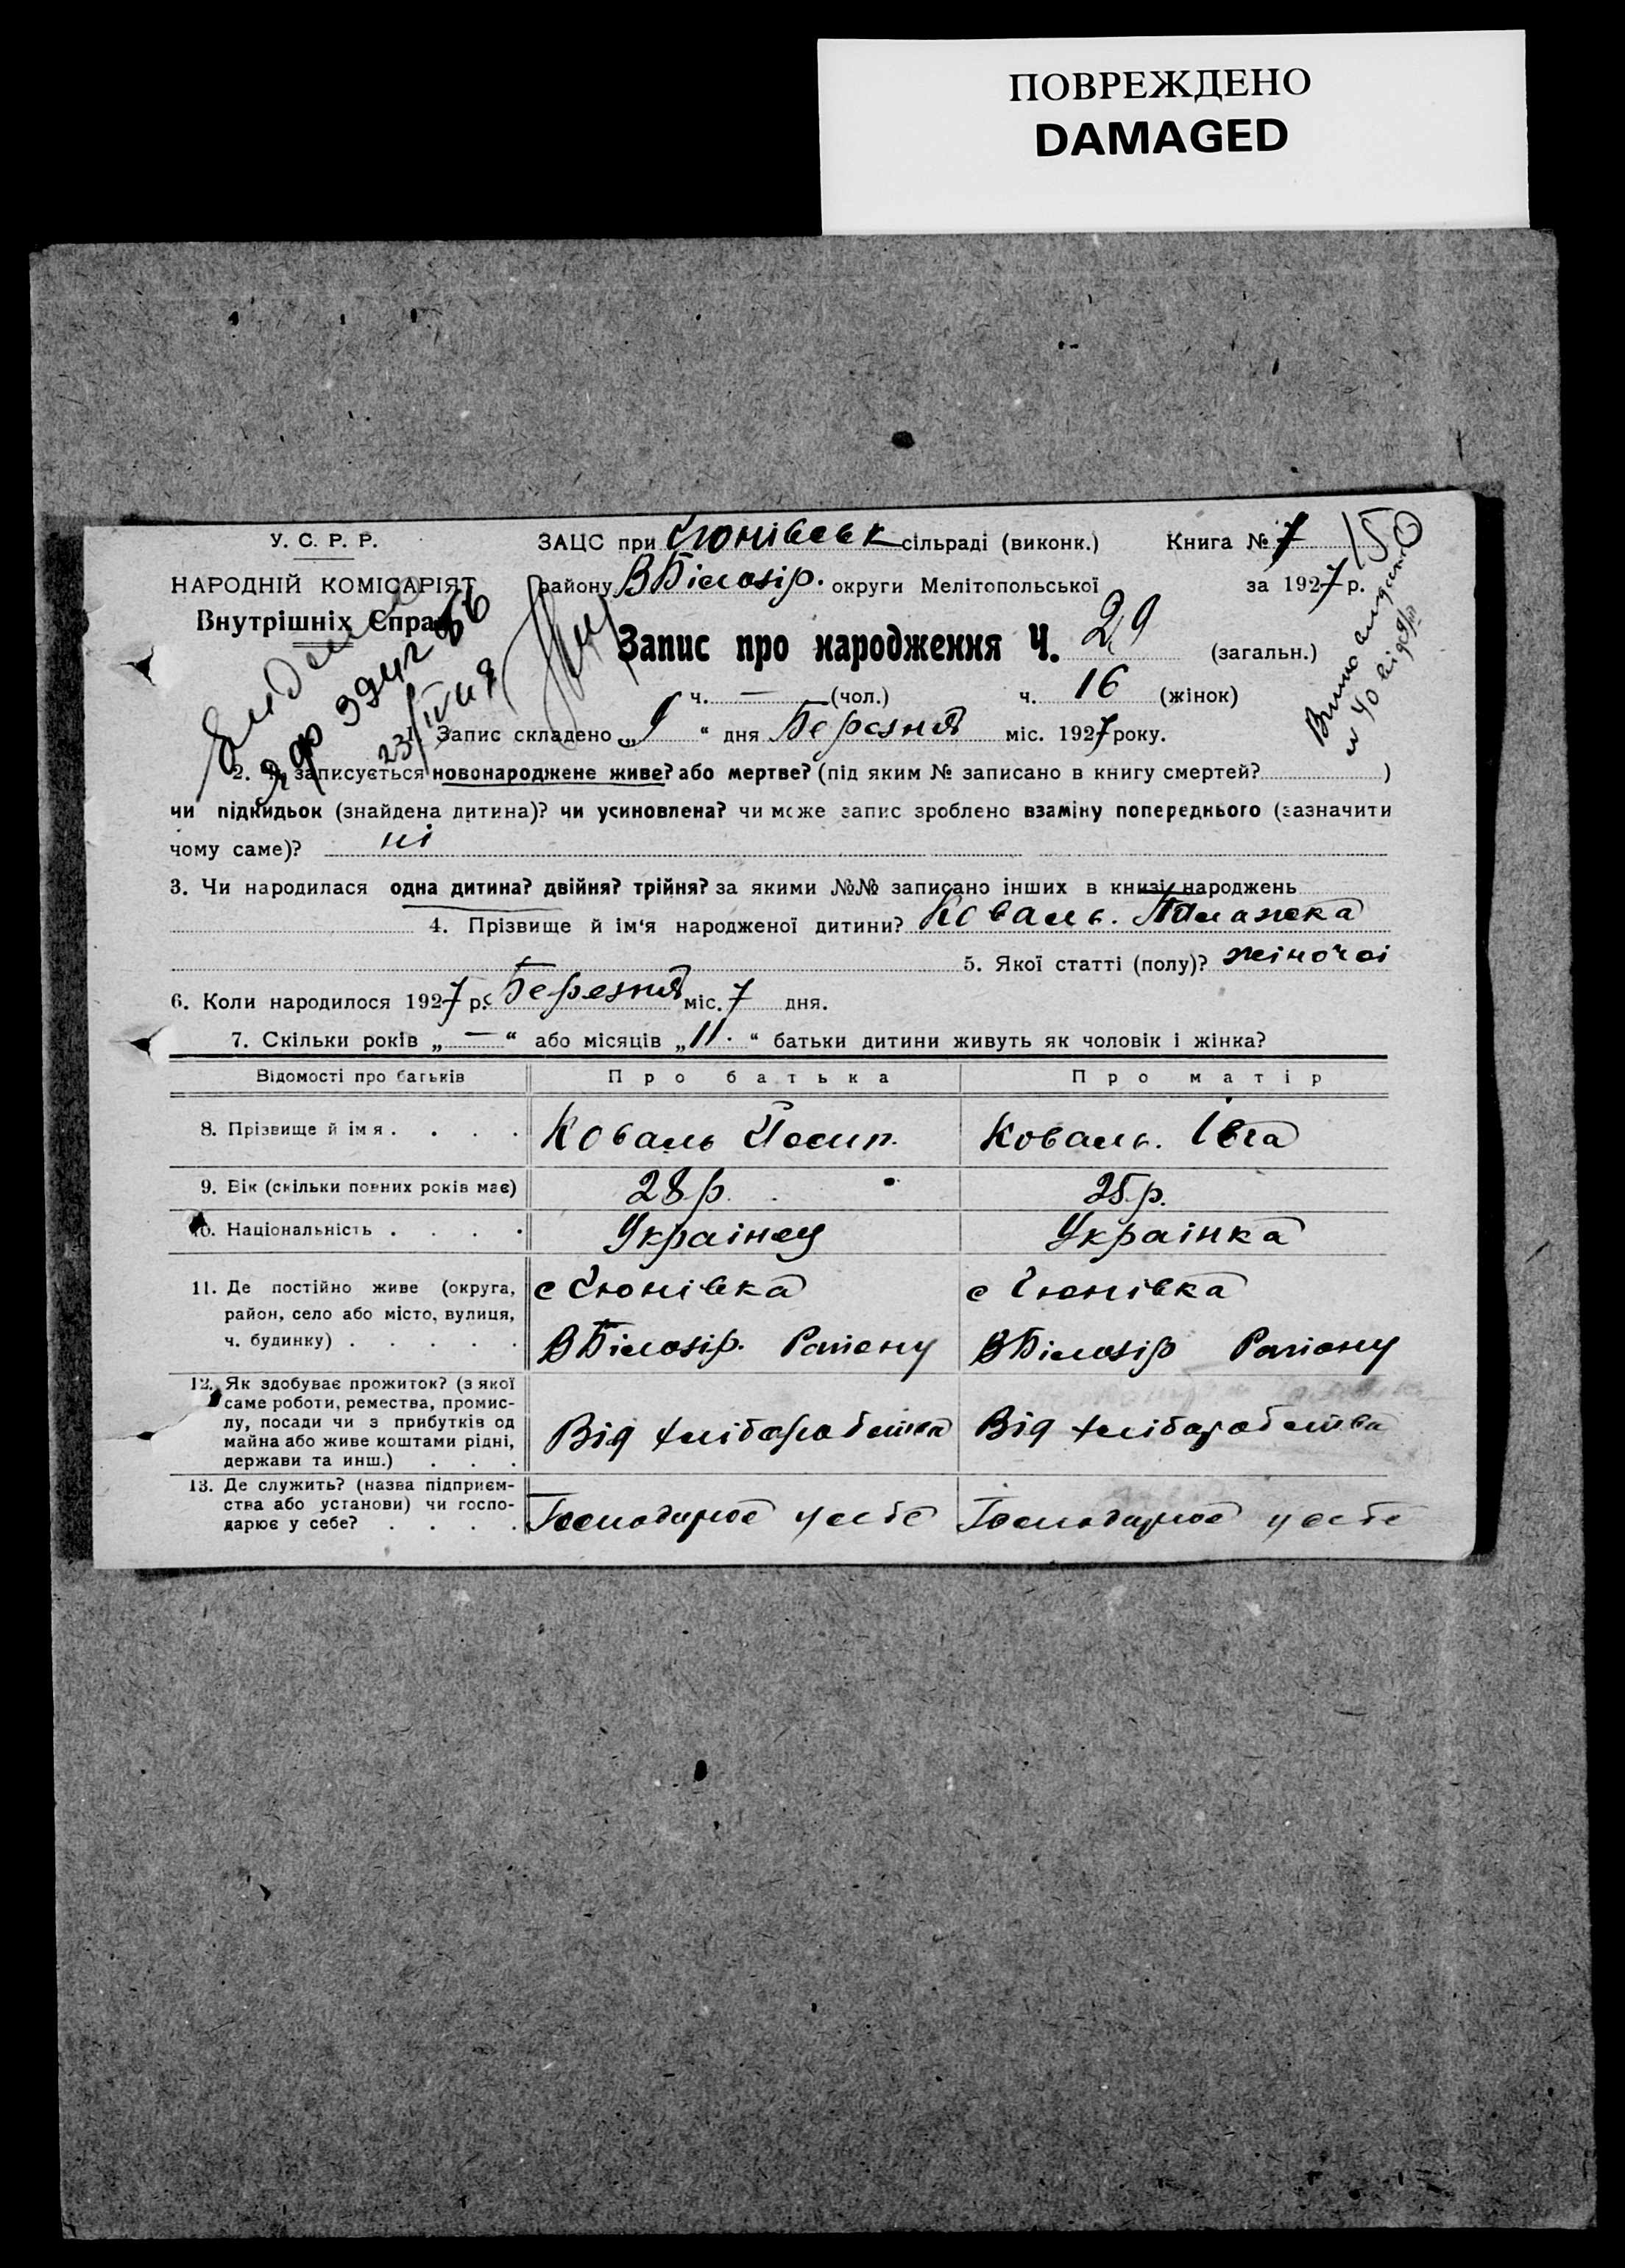 ПОВРЕЖДЕНО
DAMAGED
У. С. Р. Р.
НАРОДНІЙ КОМІСАРІЯТ
Внутрішніх Справ
ЗАЦС при сільраді (виконк.)
Книга № 7
150
району В Білозір. округи Мелітопольської
за 1927 р.
Запис про народження Ч. 29 (загальн.)
ч. — (чол.) ч. 16 (жінок)
Запис складено „9“ дня Березня міс. 1927 року.
2. записується новонароджене живе? або мертве? (під яким № записано в книгу смертей? )
чи підкидьок (знайдена дитина)? чи усиновлена? чи може запис зроблено взаміну попереднього (зазначити
чому саме)? ні
3. Чи народилася одна дитина? двійня? трійня? за якими №№ записано інших в книзі народжень
4. Прізвище й ім'я народженої дитини? Коваль.
5. Якої статті (полу)? жіночоі
6. Коли народилося 1927 р. Березня міс. 7 дня.
7. Скільки років „—“ або місяців „11.“ батьки дитини живуть як чоловік і жінка?
Відомості про батьків Про батька Про матір
8. Прізвище й імя . . . . Коваль Йосип. Коваль. Івга
9. Вік (скільки повних років має) 28 р. 25 р.
10. Національність . . . . Украінец Украінка
11. Де постійно живе (округа,
район, село або місто, вулиця,
ч. будинку) . . . . .
В Білозір. Раіону В Білозір Раіону
12. Як здобуває прожиток? (з якої
саме роботи, ремества, промис-
лу, посади чи з прибутків од
майна або живе коштами рідні,
держави та инш.) . . .
Від хліборобства Від хліборобства
13. Де служить? (назва підприєм-
ства або установи) чи госпо-
дарює у себе? . . . .
Господарює у себе Господарює у себе